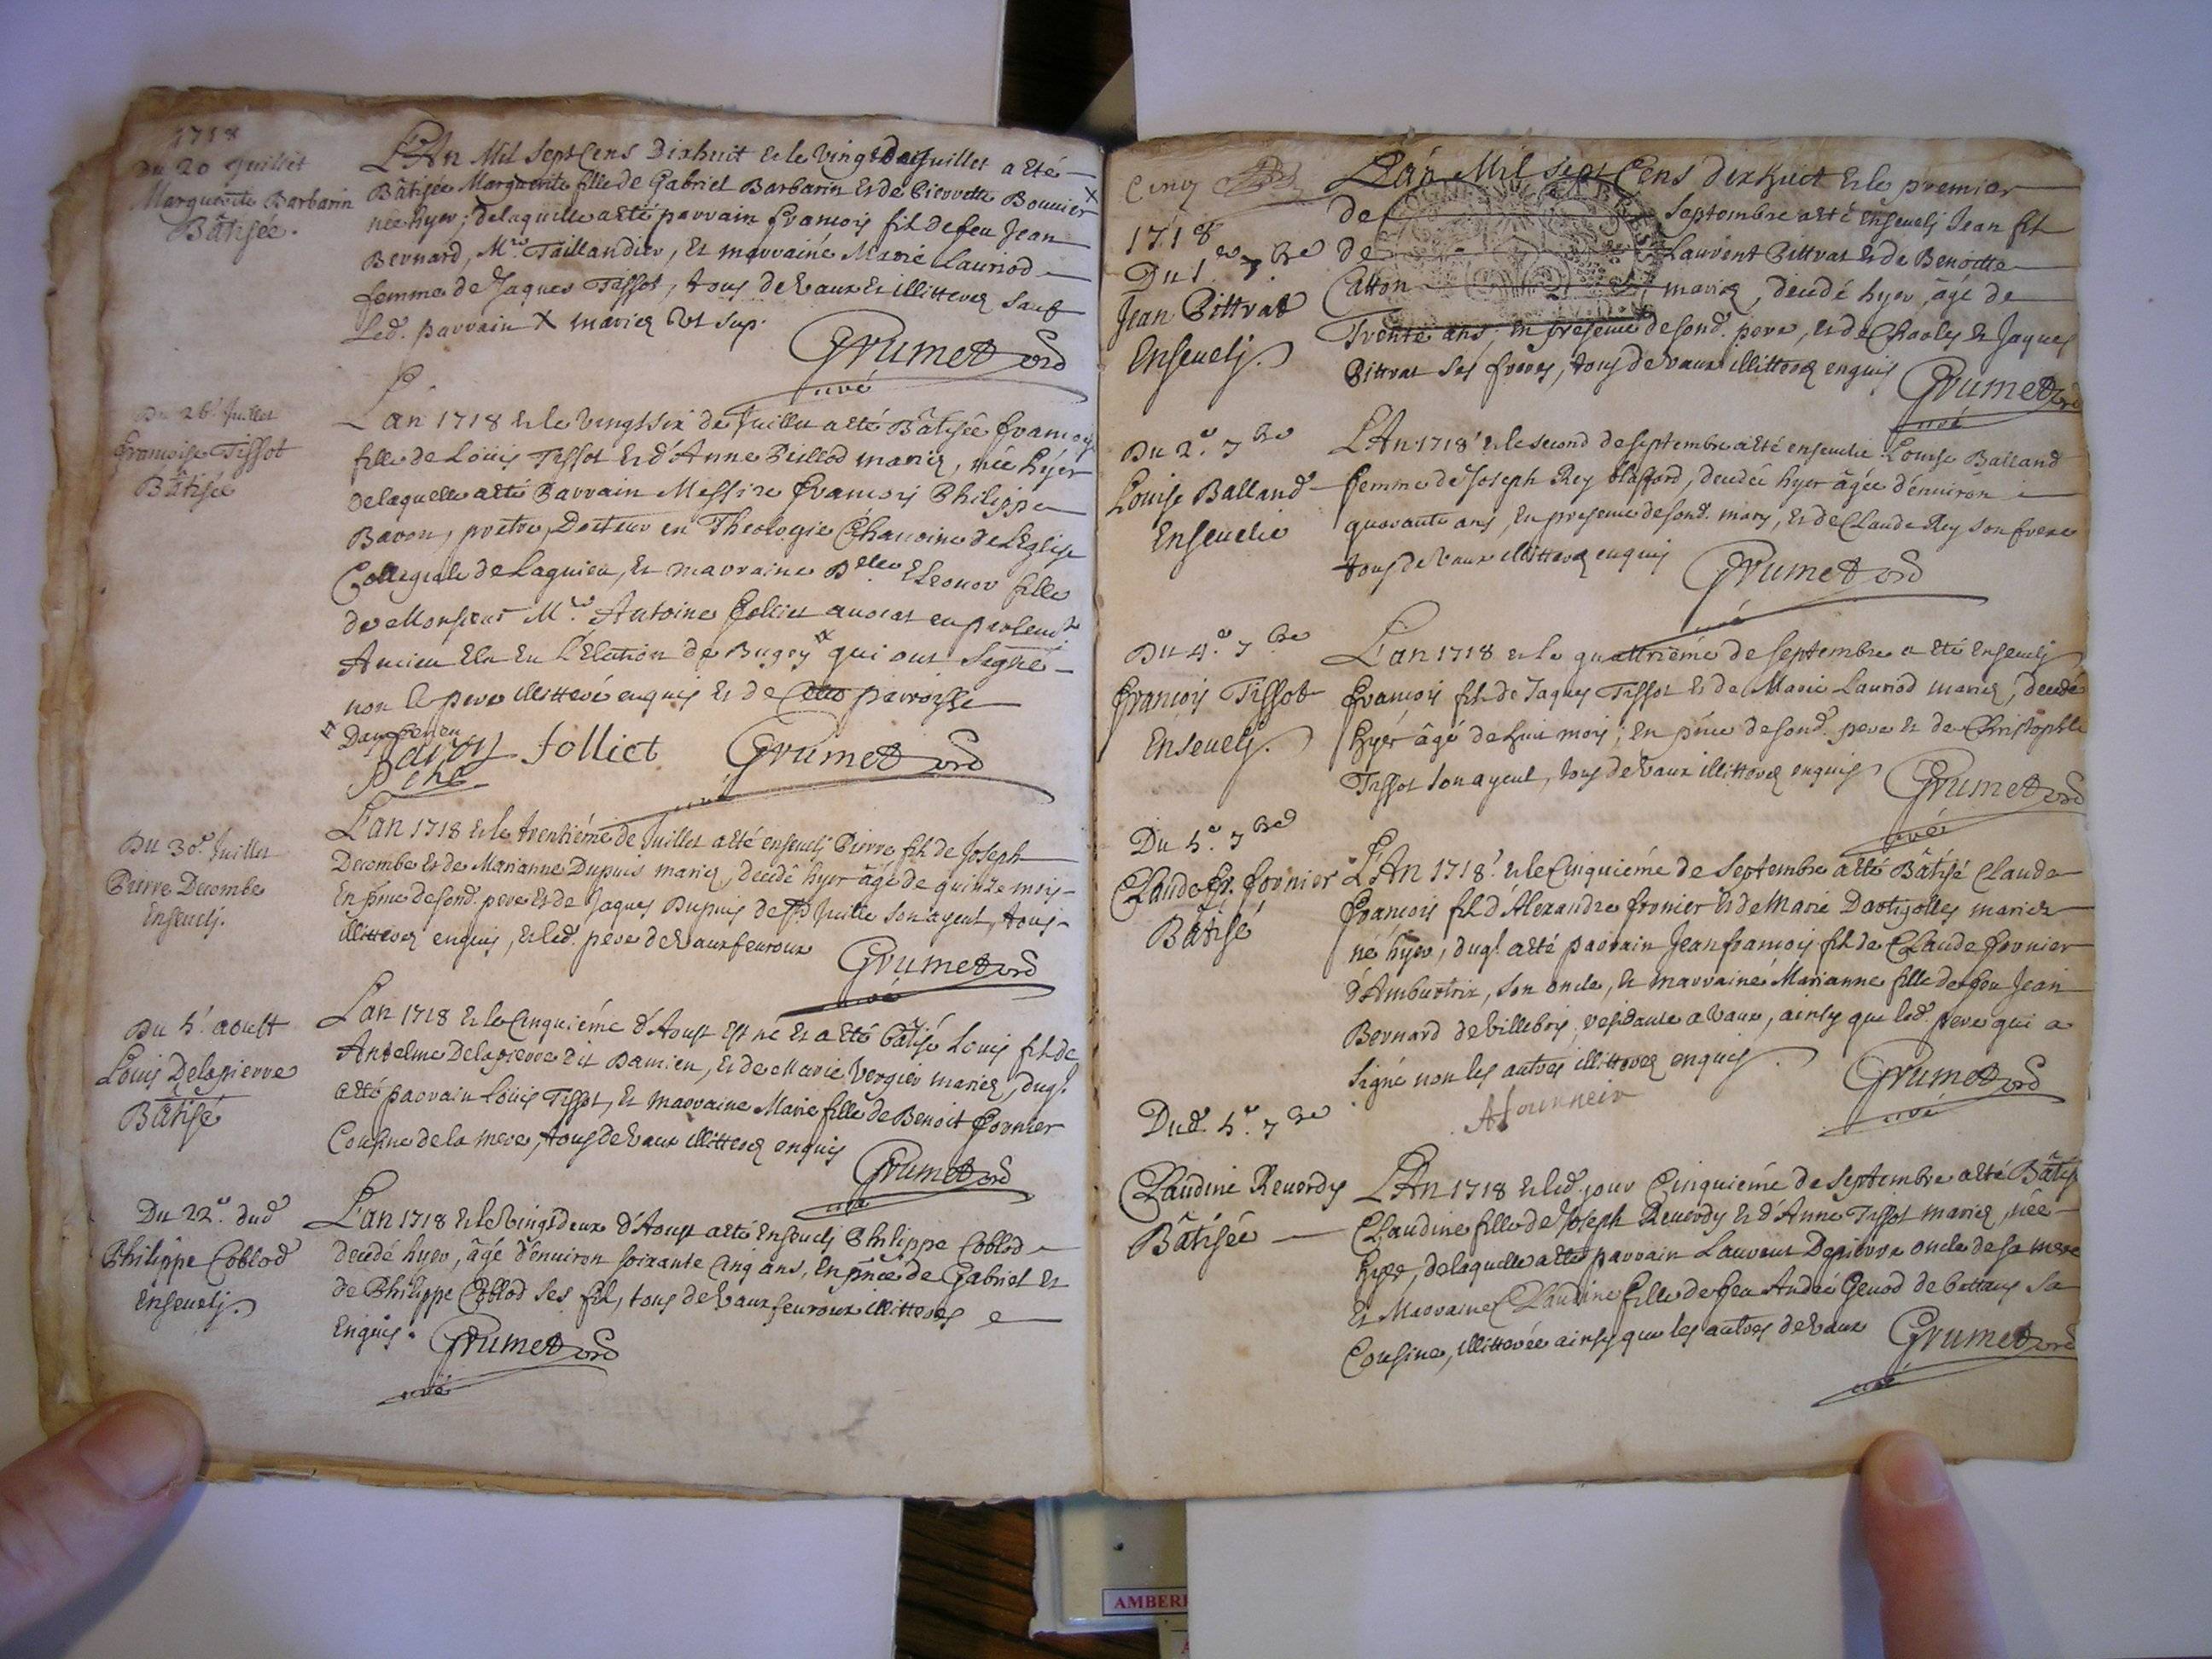 1718
Du 20 Juillet
Marguerite Barbarin
Bâtisée.
L'An Mil Sept Cens Dixhuit & le vingt de Juillet a Eté
Bâtisée Marguerite fille de Gabriel Barbarin & de Pierrette Bouvier X
née hyer; de laquelle a eté parrain François fils de feu Jean
Bernard, Mre Taillandier, Et marraine Marie Lauriod
femme de Jaques Tissot, tous de Vaux Et illitterez sauf
Led. parrain X mariez Vt sup.
Grumet
curé
Du 26e Juillet
Françoise Tissot
Bâtisée
L'an 1718 & le vingtsix de Juillet a eté Bâtisée Françoise
fille de Louis Tissot & d'Anne Peillod mariez, née hyer
de laquelle a eté Parrain Messire François Philippe
Baron, prêtre, Docteur en Theologie Chanoine de L'Eglise
Collegiale de Lagnieu, Et marraine Delle Eleonor fille
de Monsieur Mre Antoine Jolliet avocat en parlemt
Ancien Elu En L'Election de Bugey qui ont signé
non le pere illitteré enquis Et de Cette parroisse
Baron
Jolliet
Grumet
curé
Du 30e Juillet
Pierre Decombe
Enseveli.
L'an 1718 & le trentiéme de Juillet a eté enseveli Pierre fils de Joseph
Decombe Et de Marianne Dupuis mariez, decedé hyer âgé de quinze mois
En pnce de sond. pere Et de Jaques Dupuis de St Juille son ayeul, tous
illitterez enquis, Et led. pere de Vauxfevroux
Grumet
curé
Du 5e aoust
Louis Delapierre
Bâtisé
L'an 1718 & le Cinquiéme d'Aoust Est né Et a Eté Bâtisé Louis fils de
Antelme Delapierre dit Damien, Et de Marie Vergier mariez, duql
a eté parrain Louis Tissot, Et marraine Marie fille de Benoit Fornier
Cousine de la mere, tous de Vaux illitterez enquis
Grumet
curé
Du 22e dud
Philippe Coblod
Enseveli.
L'an 1718 & le vingtdeux d'Aoust a eté Enseveli Philippe Coblod
decedé hyer, âgé d'environ soixante cinq ans, En pnce de Gabriel Et
de Philippe Coblod ses fils, tous de Vauxfevroux illitterez e
Enquis.
Grumet
curé
Cinq
1718
Du 1er 7bre
Jean Pittrat
Enseveli.
L'an Mil Sept Cens dixhuit & le premier
de Septembre a eté enseveli Jean fils
de Laurent Pittrat & de Benoitte
Catton mariez, decedé hyer, âgé de
Trente ans, En presence de sond. pere, Et de Charles Et Jaques
Pittrat ses freres, tous de Vaux illitterez enquis
Grumet
curé
Du 2e 7bre
Louise Balland
Ensevelie
L'An 1718 & le second de septembre a eté ensevelie Louise Balland
femme de Joseph Rey Blaffard, decedée hyer âgée d'environ
quarante ans, En presence de sond. mary, Et de Claude Rey son frere
tous de Vaux illitterez enquis
Grumet
curé
Du 4e 7bre
François Tissot
Enseveli.
L'an 1718 & le quattriéme de septembre a Eté Enseveli
François fils de Jaques Tissot Et de Marie Lauriod mariez, decedé
hyer âgé de huit mois; En pnce de sond. pere Et de Christophle
Tissot son ayeul, tous de Vaux illitterez enquis
Grumet
curé
Du 5e 7bre
Claude Fr. Fornier
Bâtisé
L'An 1718 & le Cinquiéme de Septembre a eté Bâtisé Claude
François fils d'Alexandre Fornier & de Marie Dartigolles mariez
né hyer, duql a eté parrain Jean François fils de Claude Fornier
d'Ambutrix, son oncle, Et marraine Marianne fille de feu Jean
Bernard de Villebois, residante a Vaux, ainsy que led. pere qui a
signé non les autres illitterez enquis.
A fournier
Grumet
curé
Dud. 5e 7bre
Claudine Reverdy
Bâtisée
L'An 1718 & led. jour Cinquiéme de septembre a eté Bâtisé
Claudine fille de Joseph Reverdy Et d'Anne Tissot mariez, née
hyer, de laquelle a eté parrain Laurent Depierre oncle de sa mere
Et Marraine Claudine fille de feu André Genod de Bettans sa
Cousine, illitterée ainsy que les autres de Vaux
Grumet
curé
AMBER